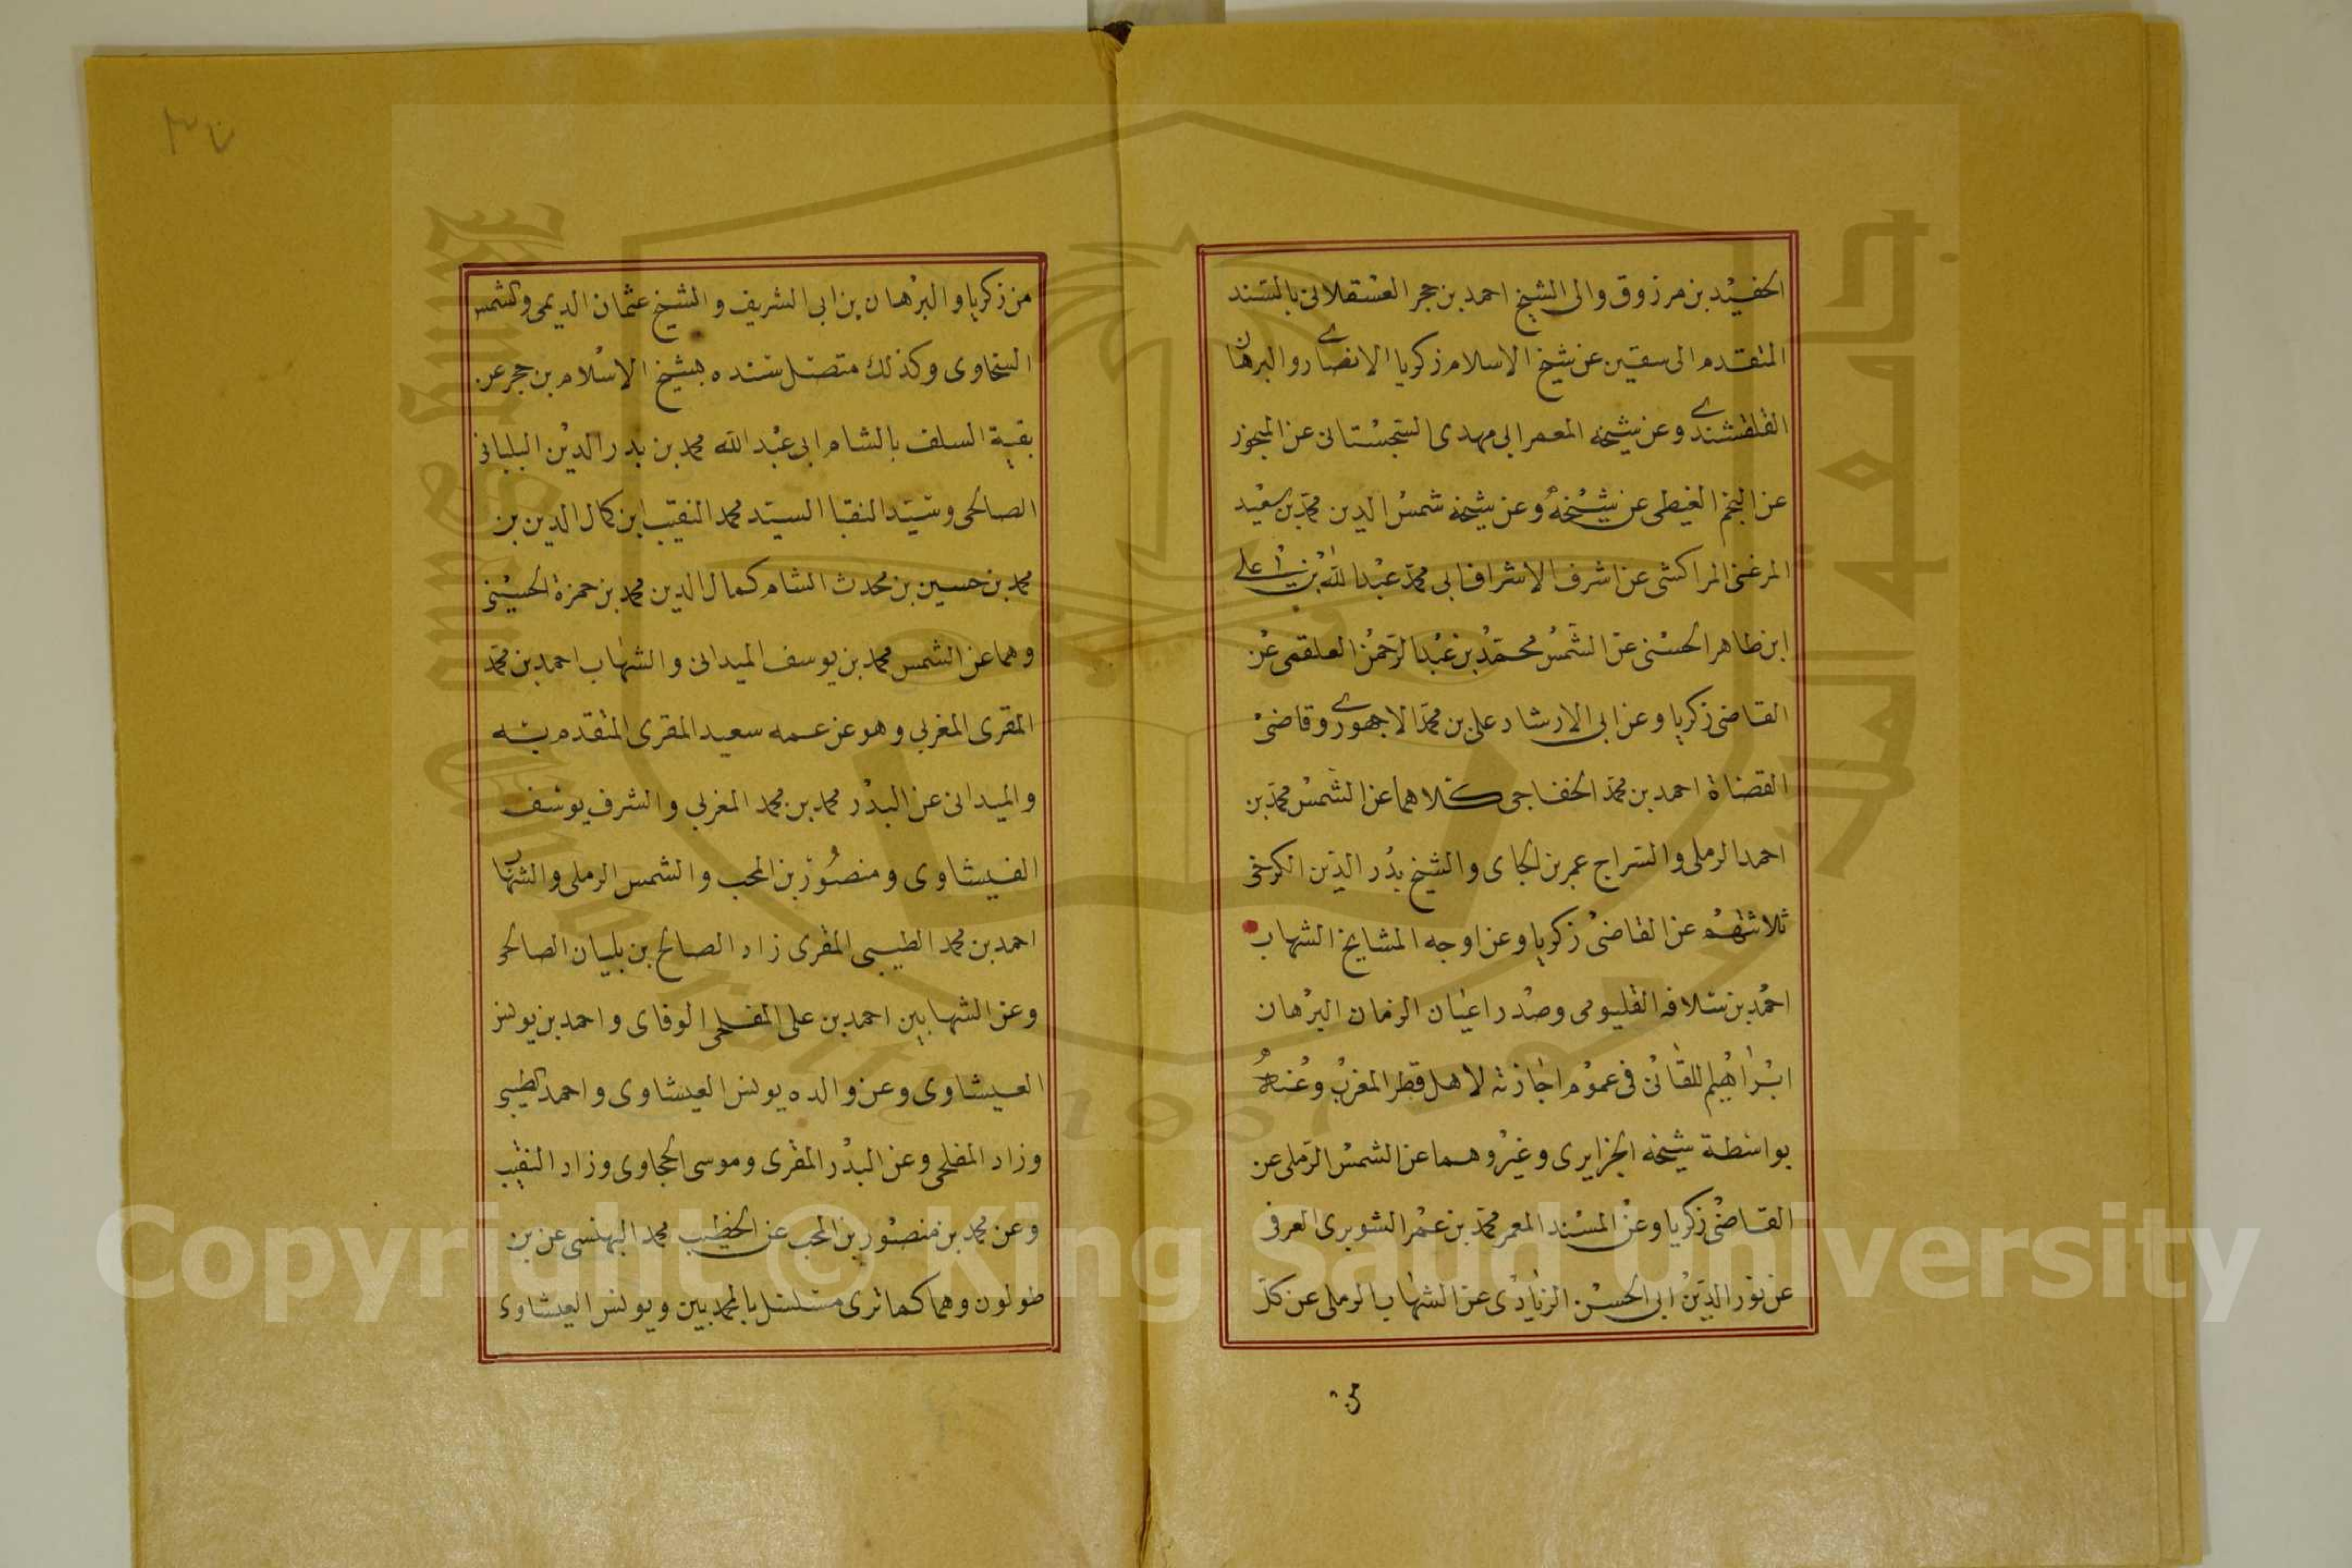 الحفيد بن مرزوق والى الشيخ احمد بن حجر العسقلانى بالسند
المتقدم الى سقين عن شيخ الاسلام زكريا الانصارى والبرهان
القلقشندى وعن شيخه المعمر ابى مهدى السجستانى عن المبجور
عن النجم الغيطى عن شيخه وعن شيخه شمس الدين محمد بن سعيد
المرغتى المراكشى عن اشرف الاشراف ابى محمد عبد الله بن على
ابن طاهر الحسنى عن الشمس محمد بن عبد الرحمن العلقمى عن
القاضى زكريا وعن ابى الارشاد على بن محمد الاجهورى وقاضى
القضاة احمد بن محمد الخفاجى كلاهما عن الشمس محمد بن
احمد الرملى والسراج عمر بن الجاى والشيخ بدر الدين الكرخى
ثلاثتهم عن القاضى زكريا وعن اوجه المشايخ الشهاب
احمد بن سلافه القليومى وصدر اعيان الزمان البرهان
ابراهيم اللقانى فى عموم اجازته لاهل قطر المغرب وعنه
بواسطة شيخه الجزايرى وغيره وهما عن الشمس الرملى عن
القاضى زكريا وعن المسند المعمر محمد بن عمر الشوبرى العرفى
عن نور الدين ابى الحسن الزيادى عن الشهاب الرملى عن كل
من زكريا والبرهان بن ابى الشريف والشيخ عثمان الديمى والشمس
السخاوى وكذلك متصل سنده بشيخ الاسلام بن حجر عن
بقية السلف بالشام ابى عبد الله محمد بن بدر الدين البلبانى
الصالحى وسيد النقبا السيد محمد النقيب ابن كمال الدين بن
محمد بن حسين بن محدث الشام كمال الدين محمد بن حمزة الحسينى
وهما عن الشمس محمد بن يوسف الميدانى والشهاب احمد بن محمد
المقرى المغربى وهو عن عمه سعيد المقرى المتقدم بسنده
والميدانى عن البدر محمد بن محمد المغربى والشرف يوسف
الفيشاوى ومنصور بن المحب والشمس الرملى والشهاب
احمد بن محمد الطيبى المقرى زاد الصالح بن بلبان الصالحى
وعن الشهابين احمد بن على المفلحى الوفاى واحمد بن يونس
العيشاوى وعن والده يونس العيشاوى واحمد الطيبى
وزاد المفلحى وعن البدر المقرى وموسى الحجاوى وزاد النقيب
وعن محمد بن منصور بن المحب عن الخطيب محمد البهنسى عن بن
طولون وهما كما ترى مسلسل بالمحمديين ويونس العيشاوى
Copyright © King Saud University
1957